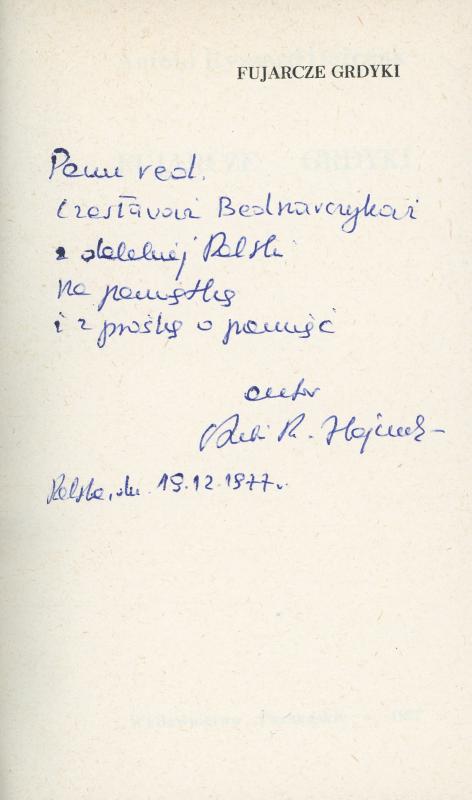 FUJARCZE GRDYKI
Panu red.
Czesławowi Bednarczykowi
z dalekiej Polski
na pamiątkę
i z prośbą o pamięć
autor
R.
Polska, dn. 19.12.1977.